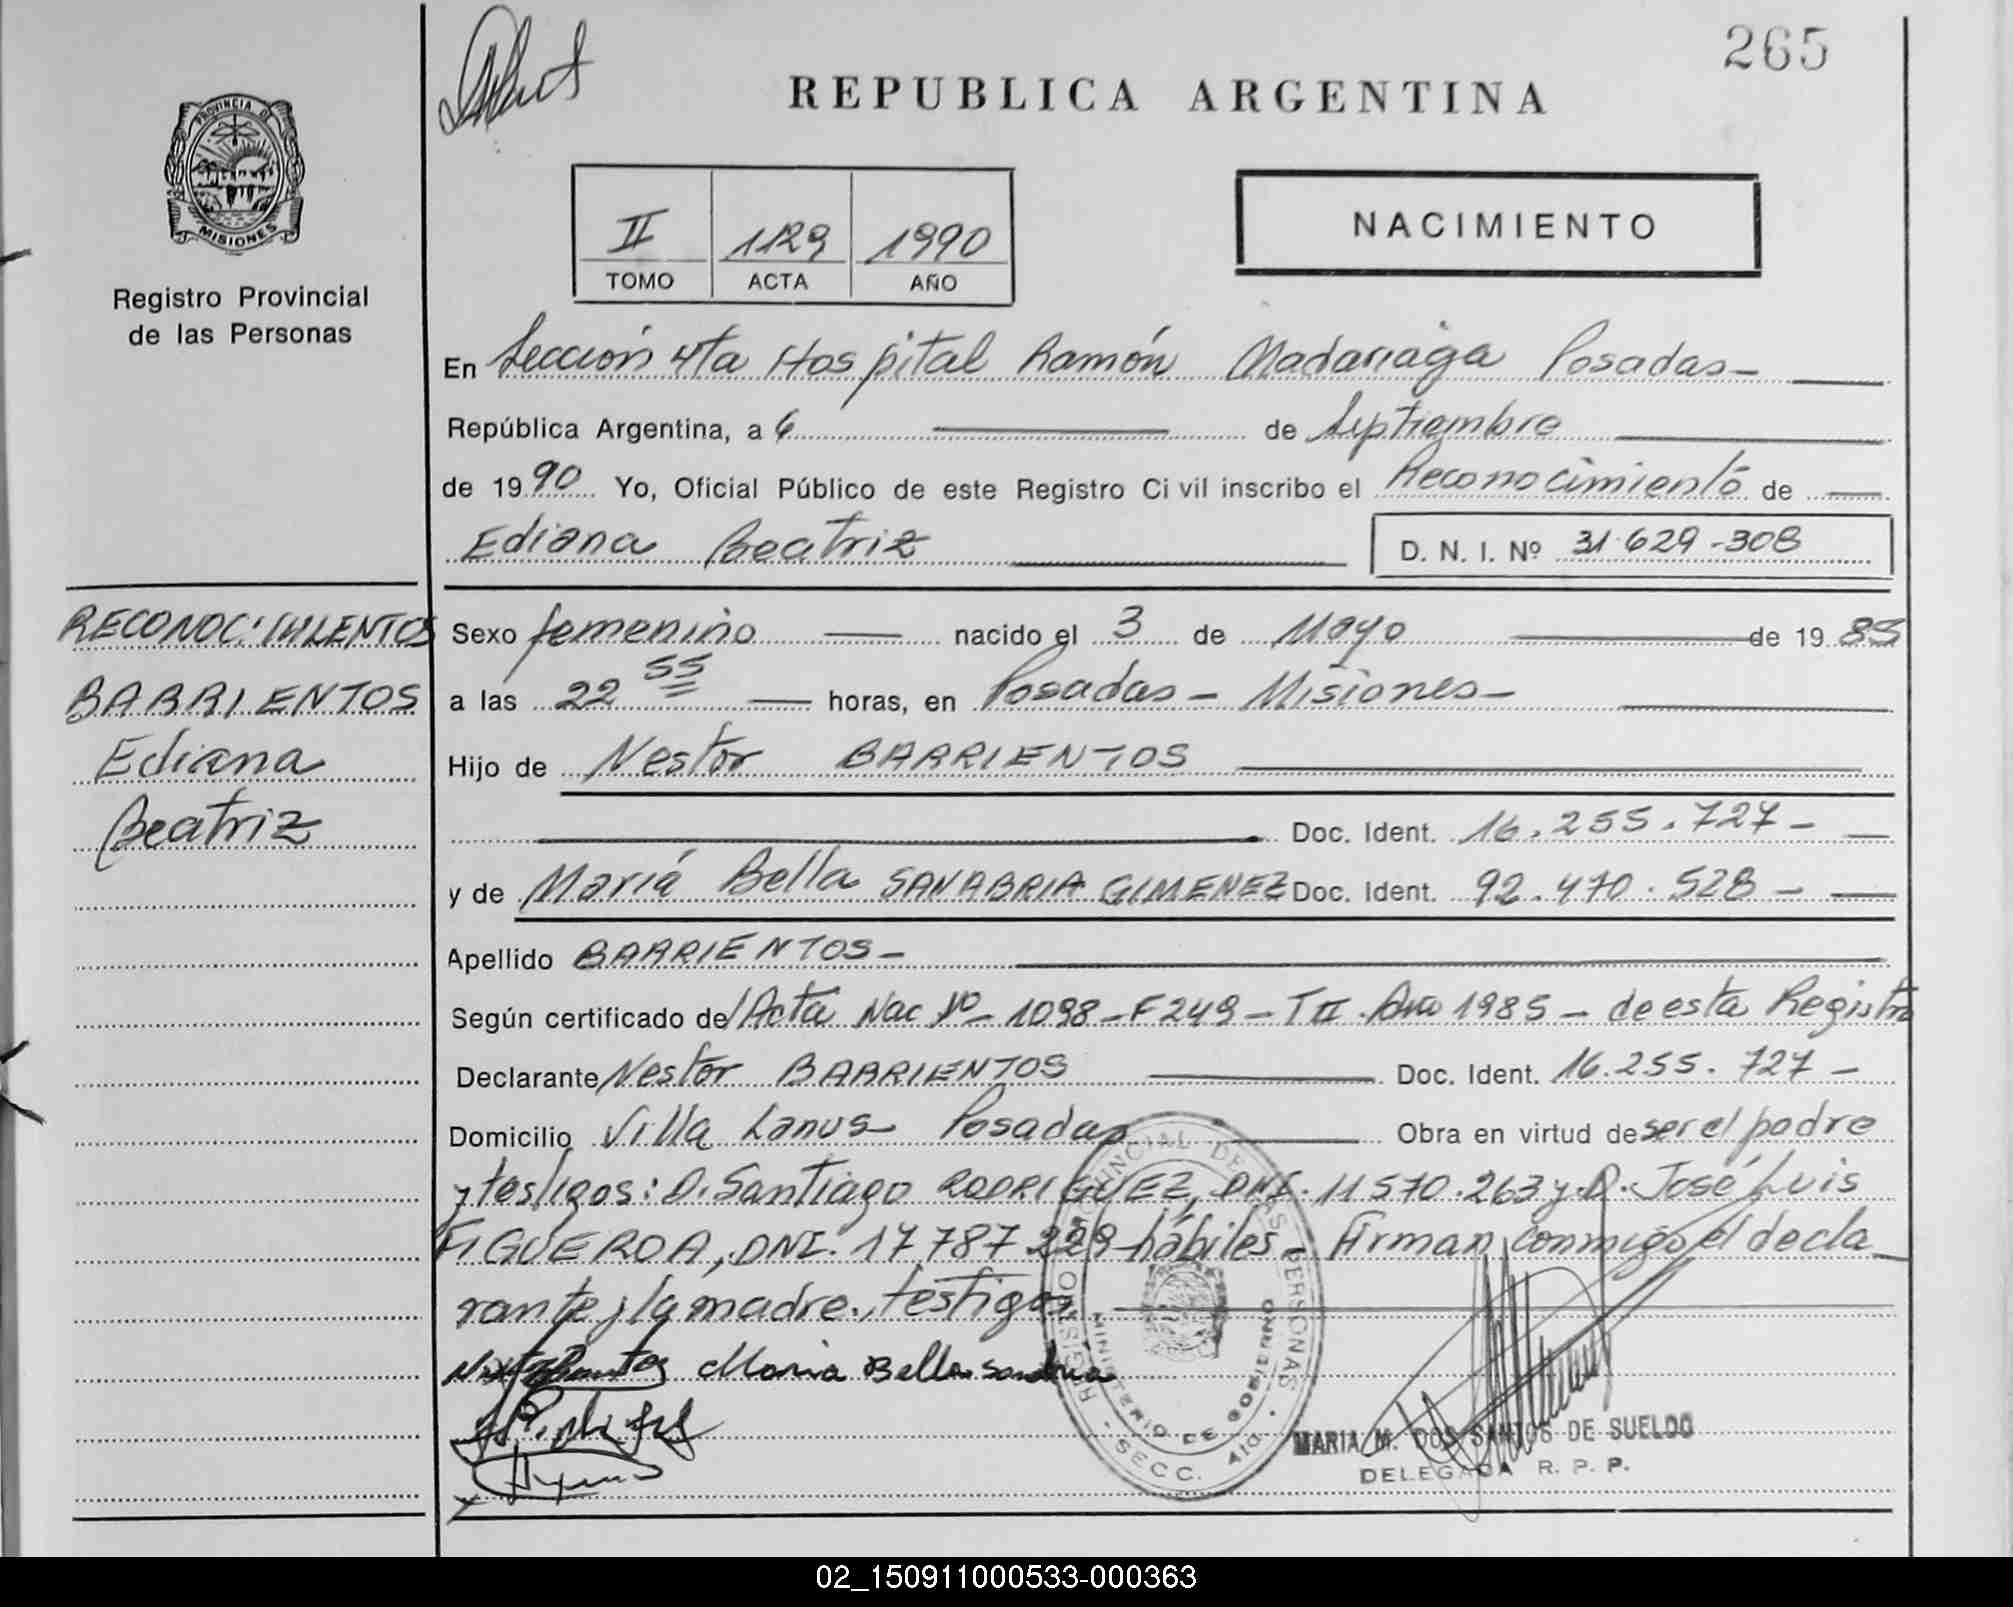 265
REPUBLICA ARGENTINA
PROVINCIA DE
MISIONES
Registro Provincial
de las Personas
II 1129 1990
TOMO ACTA AÑO
NACIMIENTO
En Sección 4ta Hospital Ramón Madariaga Posadas-
República Argentina, a 6 de Septiembre
de 1990 Yo, Oficial Público de este Registro Civil inscribo el Reconocimiento de
Ediana Beatriz D. N. I. Nº 31.629-308
RECONOCIMIENTOS
BARRIENTOS
Ediana
Beatriz
Sexo femenino nacido el 3 de Mayo de 1985
a las 22 55 horas, en Posadas - Misiones -
Hijo de Nestor BARRIENTOS
Doc. Ident. 16.255.727-
y de María Bella SANABRIA GIMENEZ Doc. Ident. 92.470.528-
Apellido BARRIENTOS-
Según certificado de Acta Nac Nº 1098-F249-TII. Año 1985 - de esta Registro
Declarante Nestor BARRIENTOS Doc. Ident. 16.255.727-
Domicilio Villa Lanus Posadas Obra en virtud de ser el padre
y testigos: D. Santiago RODRIGUEZ, DNI. 11570.263 y D. José Luis
FIGUEROA, DNI. 17787.229 hábiles - Firman conmigo el decla
rante y la madre, testigos
Maria Bella Sanabria
REGISTRO PROVINCIAL DE LAS PERSONAS
MINISTERIO DE GOBIERNO
SECC. 4ta.
MARIA M. DOS SANTOS DE SUELDO
DELEGADA R. P. P.
02_150911000533-000363